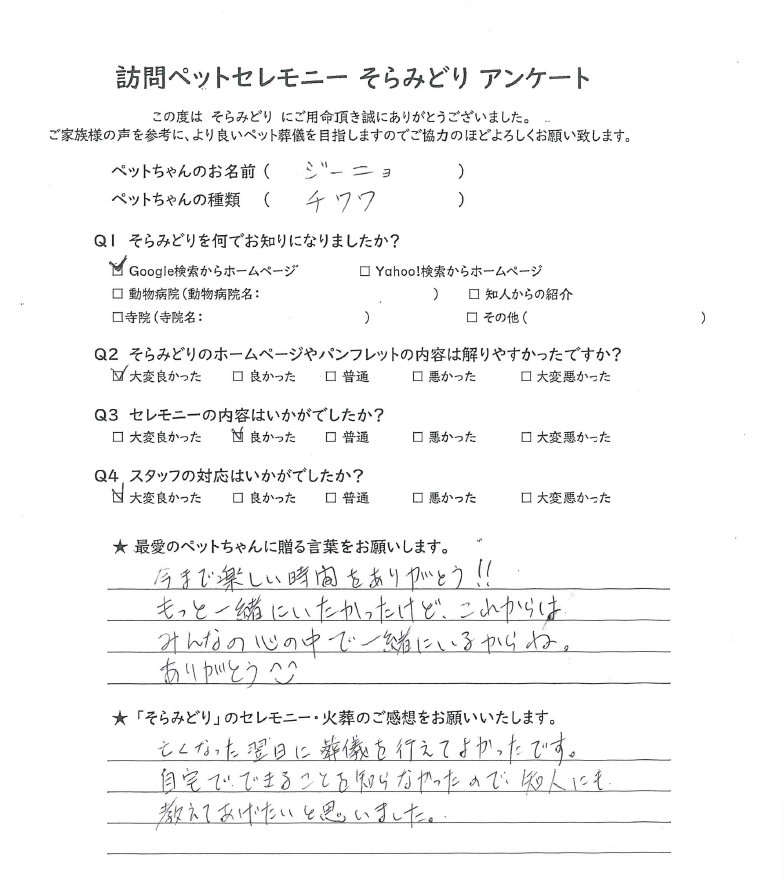 訪問ペットセレモニー そらみどり アンケート
この度は そらみどり にご用命頂き誠にありがとうございました。
ご家族様の声を参考に、より良いペット葬儀を目指しますのでご協力のほどよろしくお願い致します。
ペットちゃんのお名前 ( ジーニョ )
ペットちゃんの種類 ( チワワ )
Q1 そらみどりを何でお知りになりましたか?
☑ Google検索からホームページ □ Yahoo!検索からホームページ
□ 動物病院(動物病院名: ) □ 知人からの紹介
□寺院(寺院名: ) □ その他( )
Q2 そらみどりのホームページやパンフレットの内容は解りやすかったですか?
☑ 大変良かった □ 良かった □ 普通 □ 悪かった □ 大変悪かった
Q3 セレモニーの内容はいかがでしたか?
□ 大変良かった ☑ 良かった □ 普通 □ 悪かった □ 大変悪かった
Q4 スタッフの対応はいかがでしたか?
☑ 大変良かった □ 良かった □ 普通 □ 悪かった □ 大変悪かった
★ 最愛のペットちゃんに贈る言葉をお願いします。
今まで楽しい時間をありがとう!!
もっと一緒にいたかったけど、これからは
みんなの心の中で一緒にいるからね。
ありがとう
★「そらみどり」のセレモニー・火葬のご感想をお願いいたします。
亡くなった翌日に葬儀を行えてよかったです。
自宅でできることを知らなかったので、知人にも
教えてあげたいと思いました。